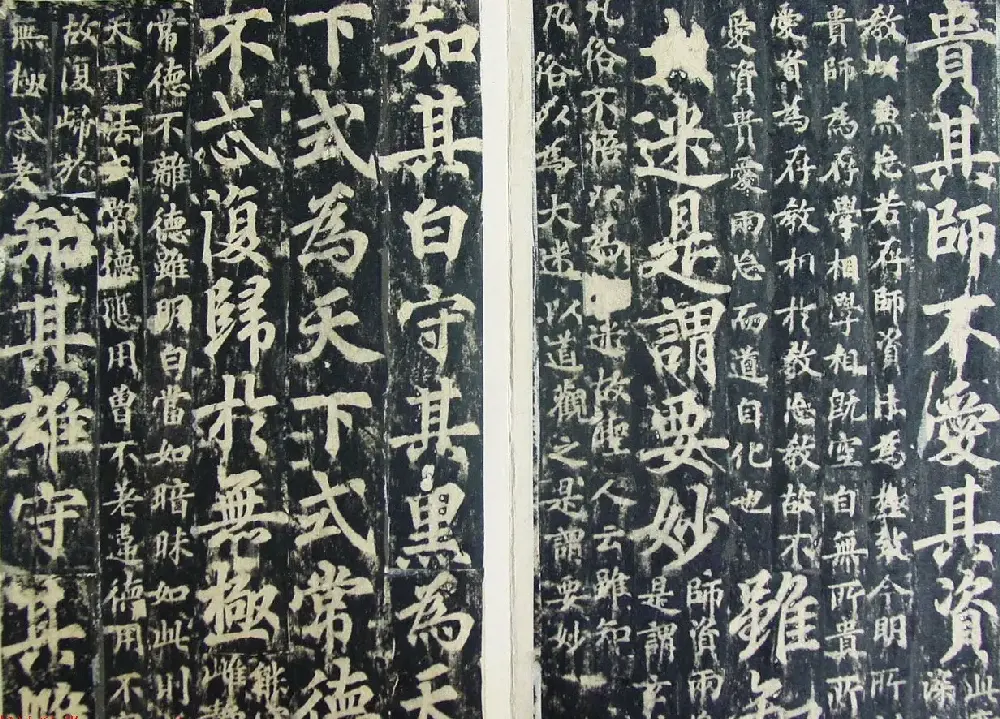 貴其師不愛其資此
教以兼忘若存師資未為極致今明所
貴師為存學相學相既空自無所貴所
愛資為存教相於教忘教故不
愛資貴愛兩忘而道自化也
雖知
大迷是謂要妙
師資兩
是謂玄
凡俗不悟以為迷故聖人云雖知
凡俗以為大迷以道觀之是謂要妙
知其白守其黑為天
下式為天下式常德
不忒復歸於無極
雌靜
常德不離德雖明白當如暗昧如此則
天下常德應用曾不差違德用不
故復歸於
無極忒差
知其雄守其雌